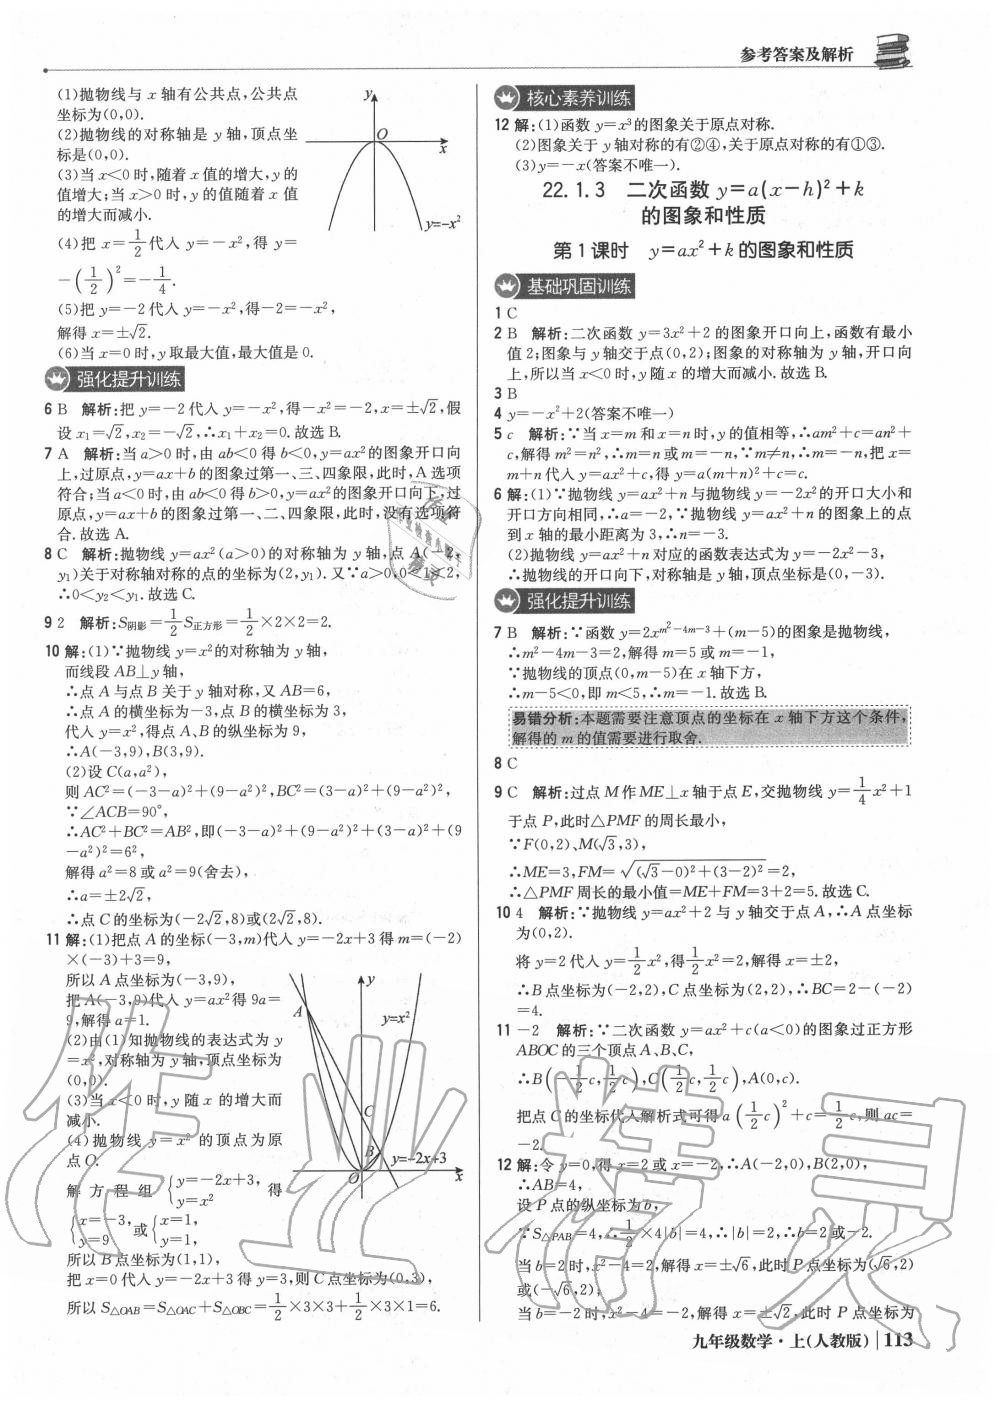 参考答案及解析
(1)抛物线与 x 轴有公共点,公共点
坐标为(0,0).
(2)抛物线的对称轴是 y 轴,顶点坐
标是(0,0).
(3)当 x<0 时,随着 x 值的增大,y 的
值增大;当 x>0 时,y 的值随着 x 值
的增大而减小.
(4)把 x=1/2代入 y=-x²,得 y=
-(1/2)²=-1/4.
(5)把 y=-2代入 y=-x²,得-2=-x²,
解得 x=±√2.
(6)当 x=0 时,y 取最大值,最大值是 0.
y
O
x
y=-x²
强化提升训练
6 B 解析:把 y=-2代入 y=-x²,得-x²=-2,x=±√2,假
设 x₁=√2,x₂=-√2,∴x₁+x₂=0.故选 B.
7 A 解析:当 a>0 时,由 ab<0 得 b<0,y=ax²的图象开口向
上,过原点,y=ax+b 的图象过第一、三、四象限,此时,A 选项
符合;当 a<0 时,由 ab<0 得 b>0,y=ax²的图象开口向下,过
原点,y=ax+b 的图象过第一、二、四象限,此时,没有选项符
合.故选 A.
8 C 解析:抛物线 y=ax²(a>0)的对称轴为 y 轴,点 A(-2,
y₁)关于对称轴对称的点的坐标为(2,y₁).又∵a>0,0<1<2,
∴0<y₂<y₁.故选 C.
9 2 解析:S阴影=1/2S正方形=1/2×2×2=2.
10 解:(1)∵抛物线 y=x²的对称轴为 y 轴,
而线段 AB⊥y 轴,
∴点 A 与点 B 关于 y 轴对称,又 AB=6,
∴点 A 的横坐标为-3,点 B 的横坐标为 3,
代入 y=x²,得点 A、B 的纵坐标为 9,
∴A(-3,9),B(3,9).
(2)设 C(a,a²),
则 AC²=(-3-a)²+(9-a²)²,BC²=(3-a)²+(9-a²)²,
∵∠ACB=90°,
∴AC²+BC²=AB²,即(-3-a)²+(9-a²)²+(3-a)²+(9
-a²)²=6²,
解得 a²=8 或 a²=9(舍去),
∴a=±2√2,
∴点 C 的坐标为(-2√2,8)或(2√2,8).
11 解:(1)把点 A 的坐标(-3,m)代入 y=-2x+3 得 m=(-2)
×(-3)+3=9,
所以 A 点坐标为(-3,9),
把 A(-3,9)代入 y=ax²得 9a=
9,解得 a=1.
(2)由(1)知抛物线的表达式为 y
=x²,对称轴为 y 轴,顶点坐标为
(0,0).
(3)当 x<0 时,y 随 x 的增大而
减小.
(4)抛物线 y=x² 的顶点为原
点 O.
解方程组{y=-2x+3, y=x² 得
{x=-3, y=9 或{x=1, y=1,
所以 B 点坐标为(1,1),
把 x=0代入 y=-2x+3 得 y=3,则 C 点坐标为(0,3),
所以 S△OAB=S△OAC+S△OBC=1/2×3×3+1/2×3×1=6.
y
A
y=x²
C
B
y=-2x+3
O
x
核心素养训练
12 解:(1)函数 y=x³的图象关于原点对称.
(2)图象关于 y 轴对称的有②④,关于原点对称的有①③.
(3)y=-x(答案不唯一).
22.1.3 二次函数 y=a(x-h)²+k
的图象和性质
第 1 课时 y=ax²+k 的图象和性质
基础巩固训练
1 C
2 B 解析:二次函数 y=3x²+2 的图象开口向上,函数有最小
值 2;图象与 y 轴交于点(0,2);图象的对称轴为 y 轴,开口向
上,所以当 x<0 时,y 随 x 的增大而减小.故选 B.
3 B
4 y=-x²+2(答案不唯一)
5 c 解析:∵当 x=m 和 x=n 时,y 的值相等,∴am²+c=an²+
c,解得 m²=n²,∴m=n 或 m=-n,∵m≠n,∴m=-n,把 x=
m+n 代入 y=ax²+c,得 y=a(m+n)²+c=c.
6 解:(1)∵抛物线 y=ax²+n 与抛物线 y=-2x²的开口大小和
开口方向相同,∴a=-2,∵抛物线 y=ax²+n 的图象上的点
到 x 轴的最小距离为 3,∴n=-3.
(2)抛物线 y=ax²+n 对应的函数表达式为 y=-2x²-3,
∴抛物线的开口向下,对称轴是 y 轴,顶点坐标是(0,-3).
强化提升训练
7 B 解析:∵函数 y=2x^(m²-4m-3)+(m-5)的图象是抛物线,
∴m²-4m-3=2,解得 m=5 或 m=-1,
∵抛物线的顶点(0,m-5)在 x 轴下方,
∴m-5<0,即 m<5,∴m=-1.故选 B.
易错分析:本题需要注意顶点的坐标在 x 轴下方这个条件,
解得的 m 的值需要进行取舍.
8 C
9 C 解析:过点 M 作 ME⊥x 轴于点 E,交抛物线 y=1/4x²+1
于点 P,此时△PMF 的周长最小,
∵F(0,2)、M(√3,3),
∴ME=3,FM=√((√3-0)²+(3-2)²)=2,
∴△PMF 周长的最小值=ME+FM=3+2=5.故选 C.
10 4 解析:∵抛物线 y=ax²+2 与 y 轴交于点 A,∴A 点坐标
为(0,2).
将 y=2代入 y=1/2x²,得1/2x²=2,解得 x=±2,
∴B 点坐标为(-2,2),C 点坐标为(2,2),∴BC=2-(-2)
=4.
11 -2 解析:∵二次函数 y=ax²+c(a<0)的图象过正方形
ABOC 的三个顶点 A、B、C,
∴B(-1/2c,1/2c),C(1/2c,1/2c),A(0,c).
把点 C 的坐标代入解析式可得 a(1/2c)²+c=1/2c,则 ac=
-2.
12 解:令 y=0,得 x=2 或 x=-2,∴A(-2,0),B(2,0),
∴AB=4,
设 P 点的纵坐标为 b,
∵S△PAB=4,∴1/2×4|b|=4,∴|b|=2,∴b=2 或-2.
当 b=2 时,x²-4=2,解得 x=±√6,此时 P 点坐标为(√6,2)
或(-√6,2);
当 b=-2 时,x²-4=-2,解得 x=±√2,此时 P 点坐标为
九年级数学·上(人教版) 113
作业精灵